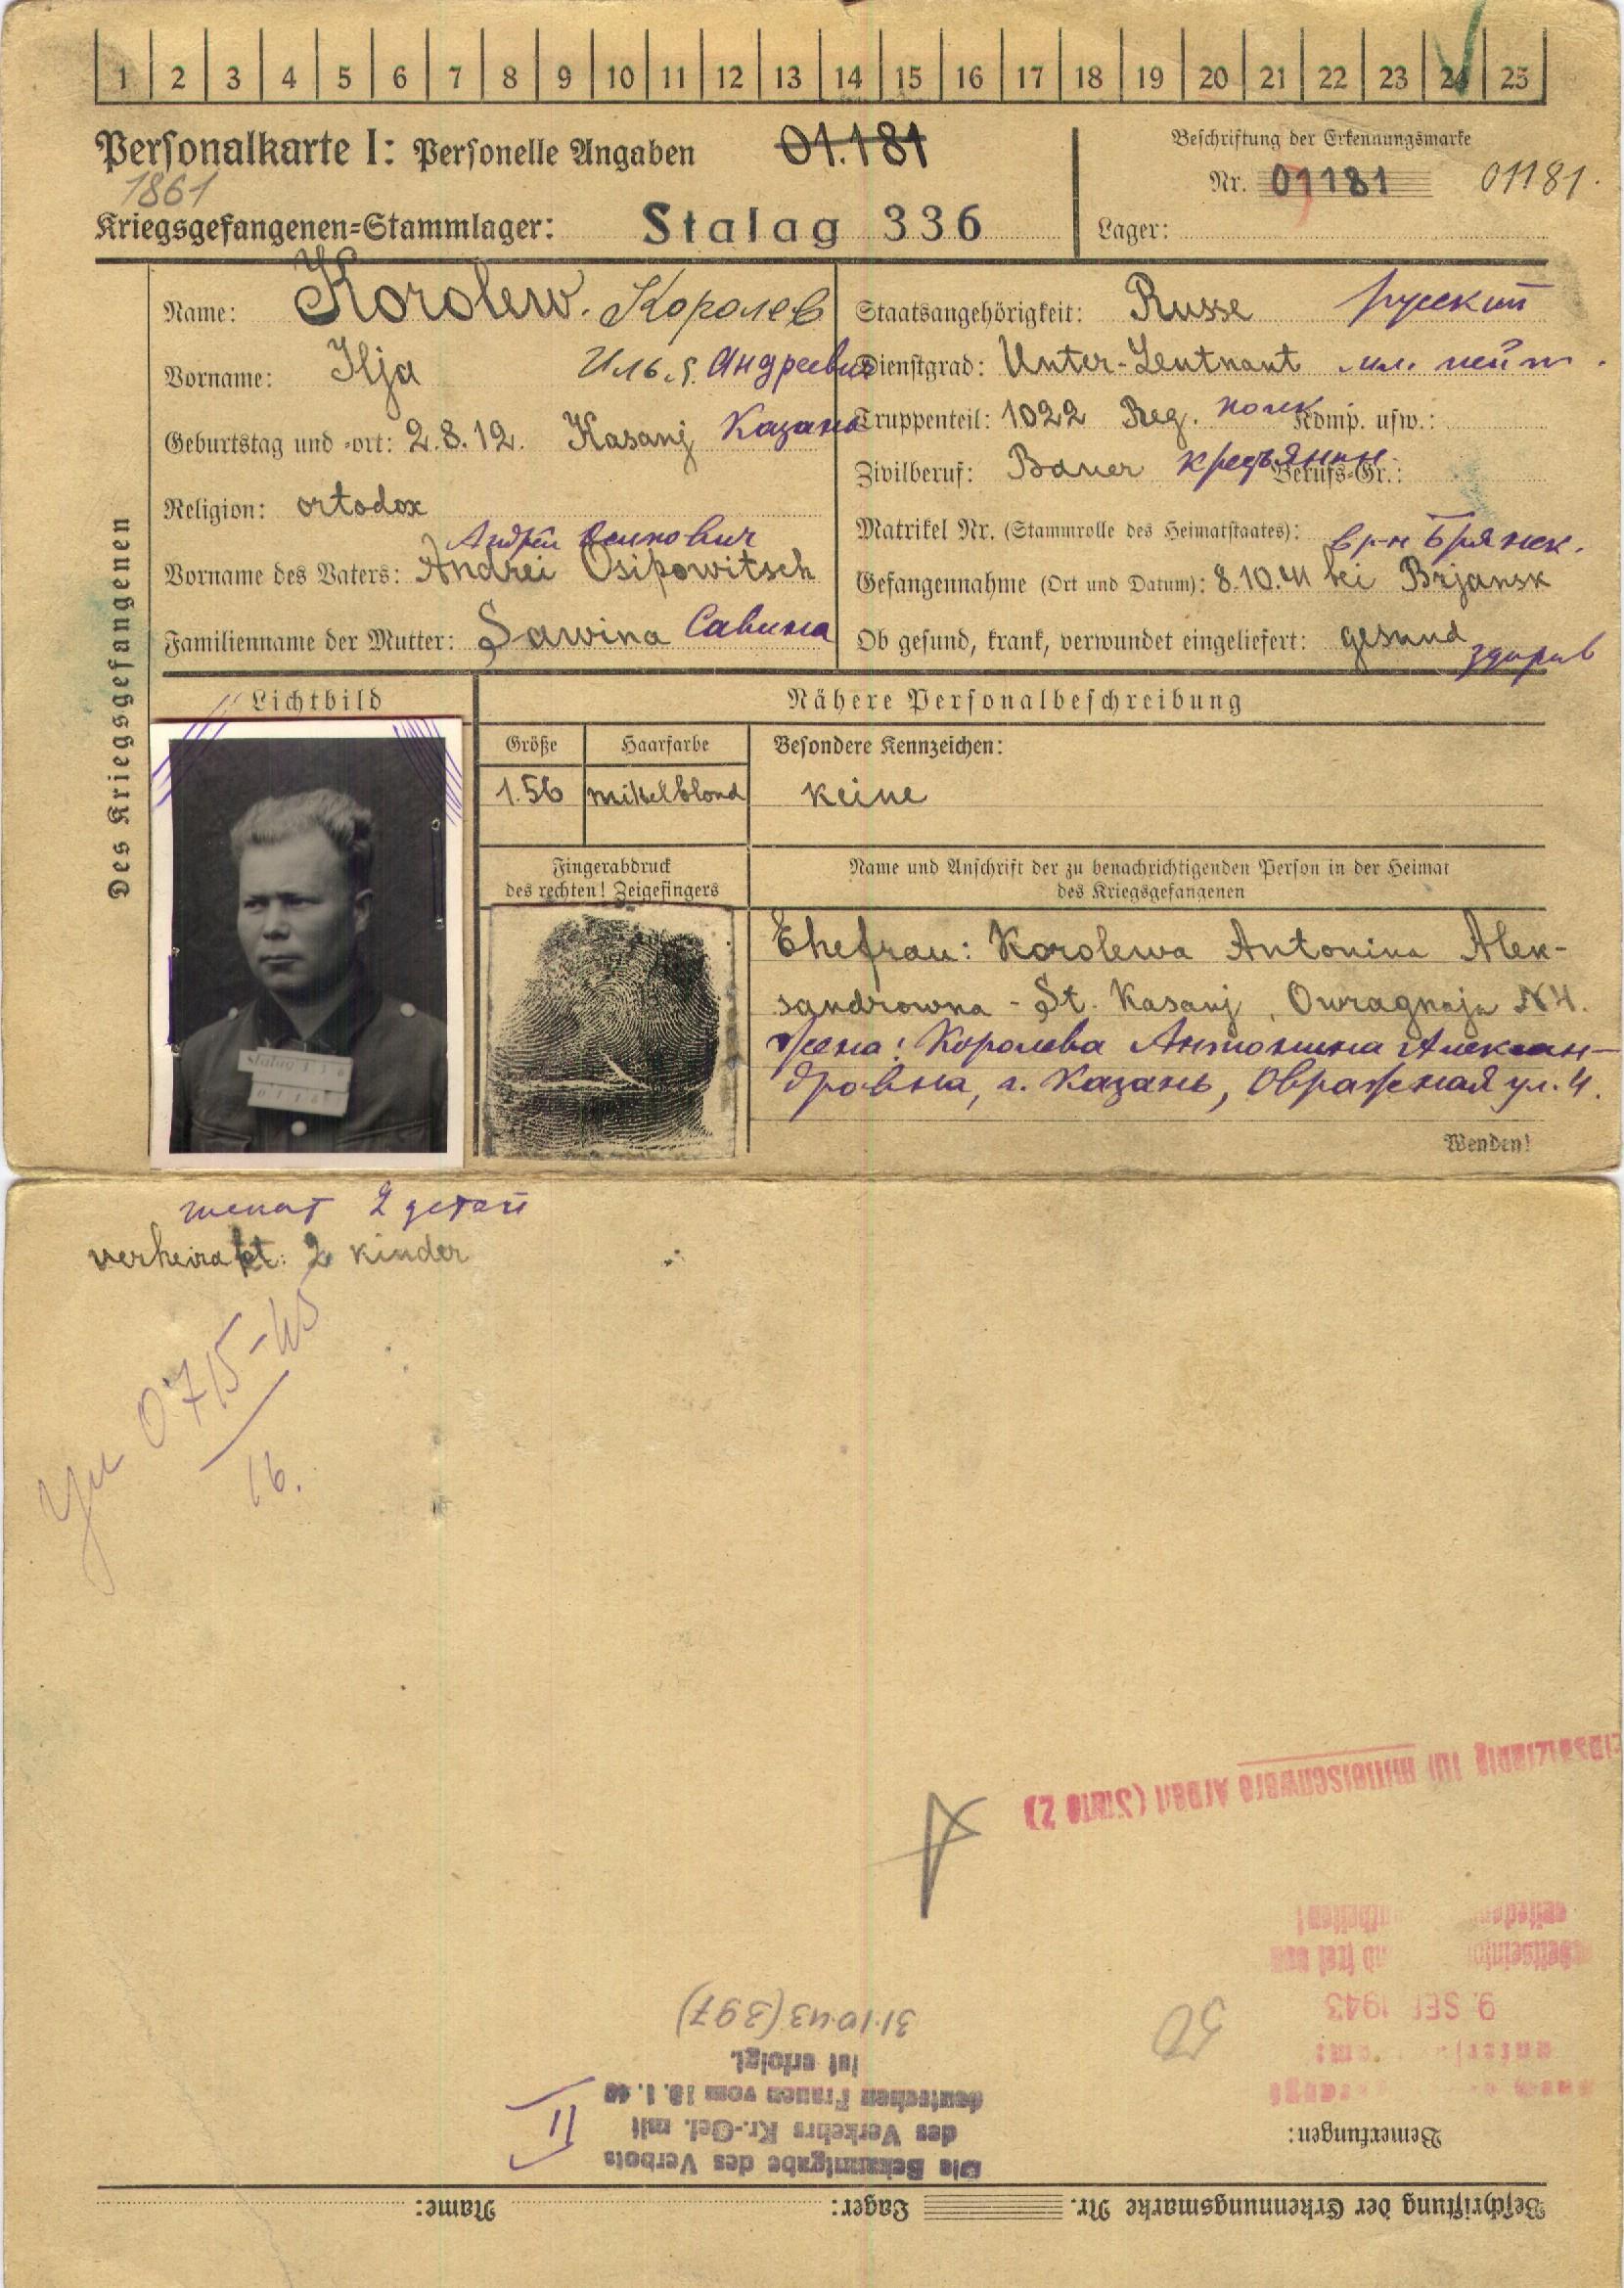 1 2 3 4 5 6 7 8 9 10 11 12 13 14 15 16 17 18 19 20 21 22 23 24 25
Personalkarte I: Personelle Angaben 01.181
Beschriftung der Erkennungsmarke
1861
Nr. 01181 01181.
Kriegsgefangenen=Stammlager: Stalag 336
Lager:
Des Kriegsgefangenen
Name: Korolew. Королев
Vorname: Ilja Илья Андреевич
Geburtstag und =ort: 2.8.12. Kasanj Казань
Religion: ortodox
Андрей Осипович
Vorname des Vaters: Andrei Osipowitsch
Familienname der Mutter: Sawina Савина
Staatsangehörigkeit: Russe русский
Dienstgrad: Unter-Leutnant мл. лейт.
Truppenteil: 1022 Reg. полк Komp. usw.:
Zivilberuf: Bauer крестьянин Berufs=Gr.:
Matrikel Nr. (Stammrolle des Heimatstaates):
в р-н Брянск.
Gefangennahme (Ort und Datum): 8.10.41 bei Brjansk
Ob gesund, krank, verwundet eingeliefert: gesund
здоров
Lichtbild
Nähere Personalbeschreibung
Größe Haarfarbe Besondere Kennzeichen:
1.56 mittelblond keine
Fingerabdruck
des rechten! Zeigefingers
Name und Anschrift der zu benachrichtigenden Person in der Heimat
des Kriegsgefangenen
Ehefrau: Korolewa Antonina Alek-
sandrowna - St. Kasanj, Owragnaja N4.
Жена: Королева Антонина Алексан-
дровна, г. Казань, Овражная ул. 4.
Wenden!
женат 2 детей
verheiratet: 2 kinder
0715-45
16.
Einsatzfähig für mittelschwere Arbeit (Stufe 2)
9. SEP. 1943
50
31.10.43 (397)
ist erfolgt.
deutschen Frauen vom
des Verkehrs Kr.-Gef. mit
Die Bekanntgabe des Verbots
II
Bemerkungen:
Beschriftung der Erkennungsmarke Nr. Lager: Name: